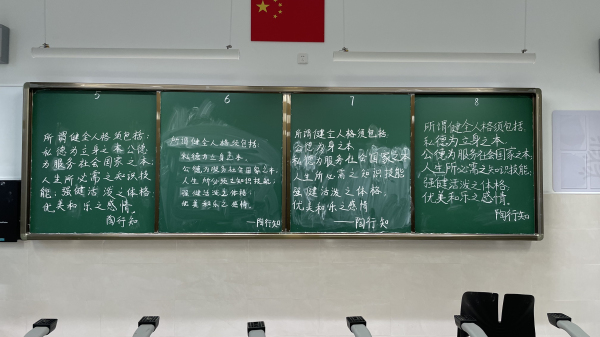 5
所谓健全人格须包括:
私德为立身之本,公德
为服务社会国家之本;
人生所必需之知识技
能;强健活泼之体格;
优美和乐之感情。
陶行知
6
所谓健全人格须包括:
私德为立身之本,
公德为服务社会国家之本;
人生所必需之知识技能;
强健活泼之体格;
优美和乐之感情。
——陶行知
7
所谓健全人格须包括:
公德为立身之本
私德为服务社会国家之本
人生所必需之知识技能
强健活泼之体格
优美和乐之感情
——陶行知
8
所谓健全人格须包括:
私德为立身之本,
公德为服务社会国家之本;
人生所必需之知识技能;
强健活泼之体格;
优美和乐之感情。
陶行知